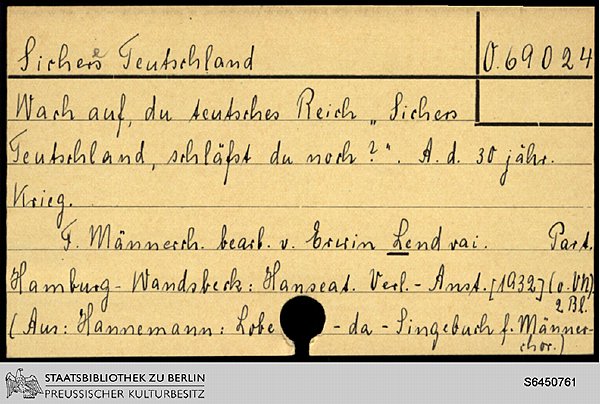 Sichers Teutschland
O. 69024
Wach auf, du teutsches Reich „Sichers
Teutschland, schläfst du noch?“. A. d. 30 jähr.
Krieg.
F. Männerch. bearb. v. Erwin Lendvai. Part.
Hamburg-Wandsbeck: Hanseat. Verl.-Anst. [1932] (o. VN).
2 Bl.
(Aus: Hannemann: Lobe-da-Singebuch f. Männer-
chor.)
STAATSBIBLIOTHEK ZU BERLIN
PREUSSISCHER KULTURBESITZ
S6450761